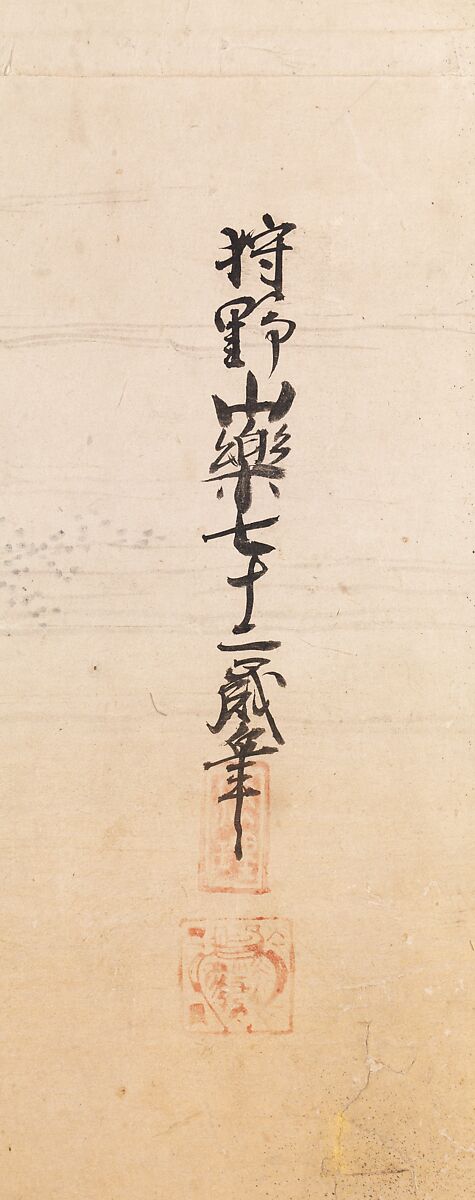 狩野山樂七十二歳筆